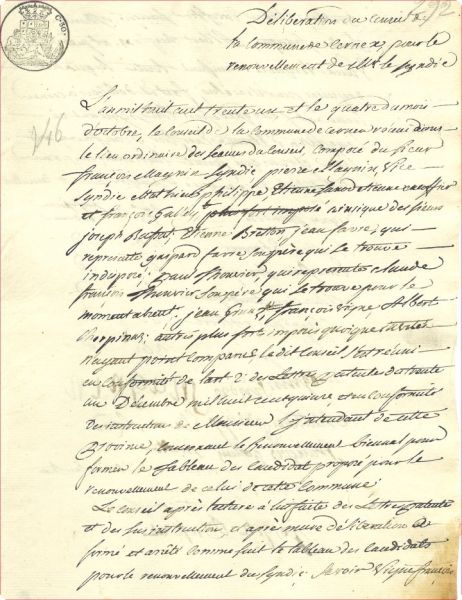 292
Déliberation du Conseil de
la Commune de Cernex, pour le
renouvellement de Mr. le Syndic
146
L'an mil huit cent trente un et le quatre du mois
d'octobre, le Conseil de la Commune de Cernex réuni dans
le lieu ordinaire des séances du Conseil, composé du sieur
françois Maynin Syndic pierre Maynin, Vice
Syndic philippe Etienne
et françois plus fort imposé ainsique des sieurs
joseph Buffat, Etienne Breton, jean favre, qui
represente gaspard favre, son père qui se trouve
indisposé; paul Bouvier, qui represente claude
françois Bouvier son père qui se trouve pour le
moment absent, jean françois Vigne Albert
autres plus forts imposés quoique
n'ayant point comparu. Le dit Conseil
en conformité de l'art. 2 des Lettres patente du trente
un Décembre mil huit cent quinze et en conformité
des instruction de Monsieur L'intendant de cette
Province, concernant le Renouvellement biennal pour
former le Tableau des Candidat proposé pour le
renouvellement de celui de cette Commune;
Le Conseil après lecture à lui faite des Lettre patente
et des sus instruction, et après mure déliberation a
formé et arrêté comme suit le tableau des Candidats
pour le renouvellement du Syndic Savoir Vigne francois